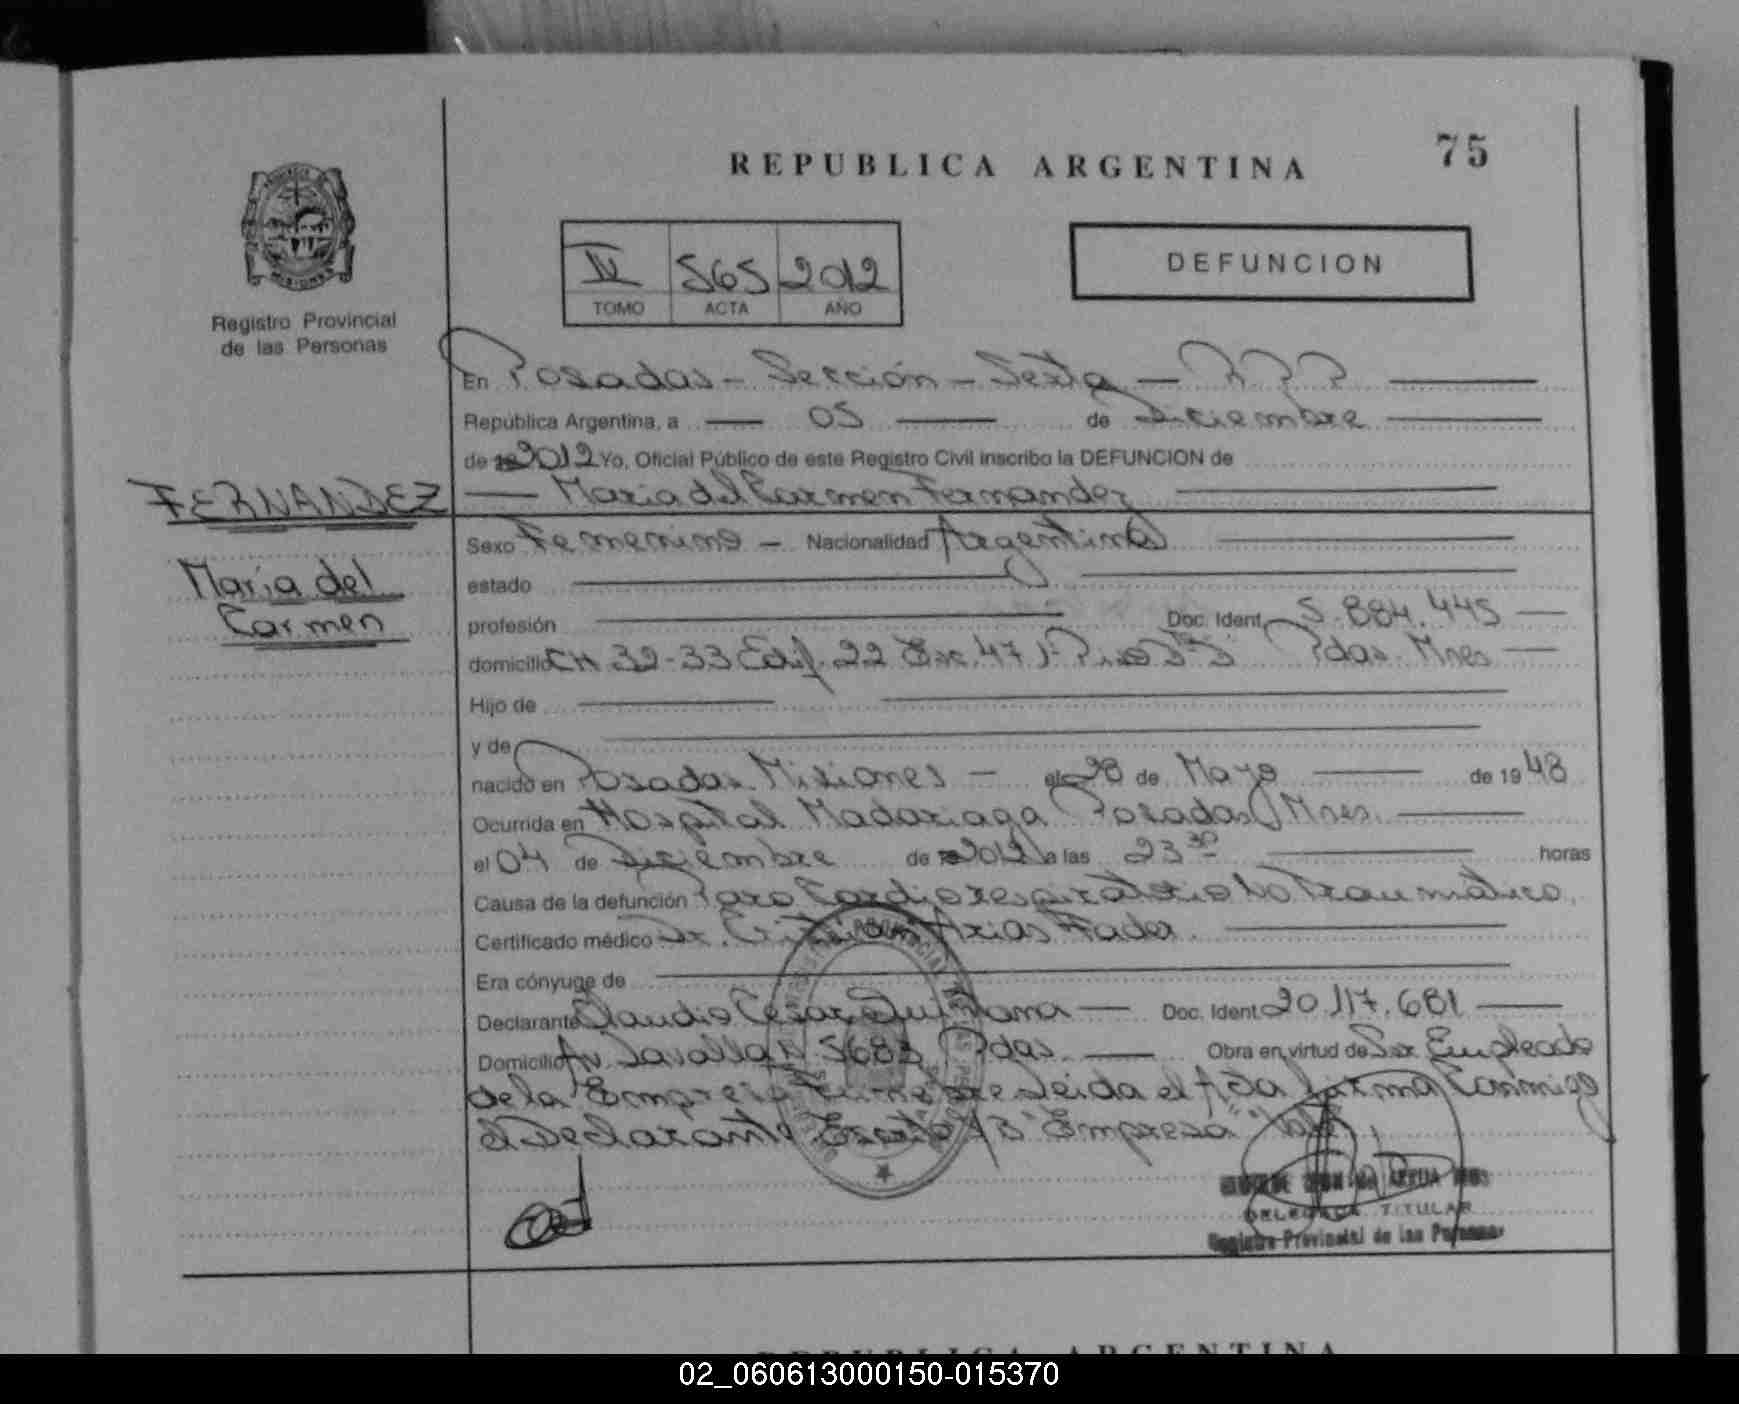 REPUBLICA ARGENTINA
75
Registro Provincial
de las Personas
IV 565 2012
TOMO ACTA AÑO
DEFUNCION
En Posadas - Sección - Sexta - RPP
República Argentina, a 05 de Diciembre
de 2012 Yo, Oficial Público de este Registro Civil inscribo la DEFUNCION de
FERNANDEZ
María del Carmen Fernandez
María del
Carmen
Sexo Femenino - Nacionalidad Argentina
estado
profesión Doc. Ident. 5.884.445
domicilio CH 32-33 Edif. 22 Esc. 47 Piso 3º Pdas. Mnes
Hijo de
y de
nacido en Posadas Misiones - el 28 de Mayo de 1948
Ocurrida en Hospital Madariaga Posadas Mnes.
el 04 de Diciembre de 2012 a las 23 30 horas
Causa de la defunción Paro Cardiorespiratorio No Traumático.
Certificado médico Dr. Cristian Arias Fader
Era cónyuge de
Declarante Claudio Cesar Quintana - Doc. Ident. 20.117.681
Domicilio Av. Lavalle Nº 5683 Pdas. Obra en virtud de Ser Empleado
de la Empresa Funebre Leida el Acta firma Conmigo
el Declarante "Empresa" Vale
DELEGADA TITULAR
Registro Provincial de las Personas
REPUBLICA ARGENTINA
02_060613000150-015370